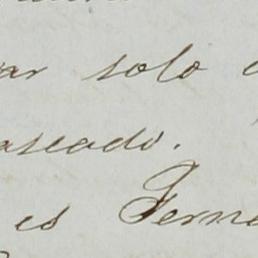 ar solo
aseado.
es Ferna